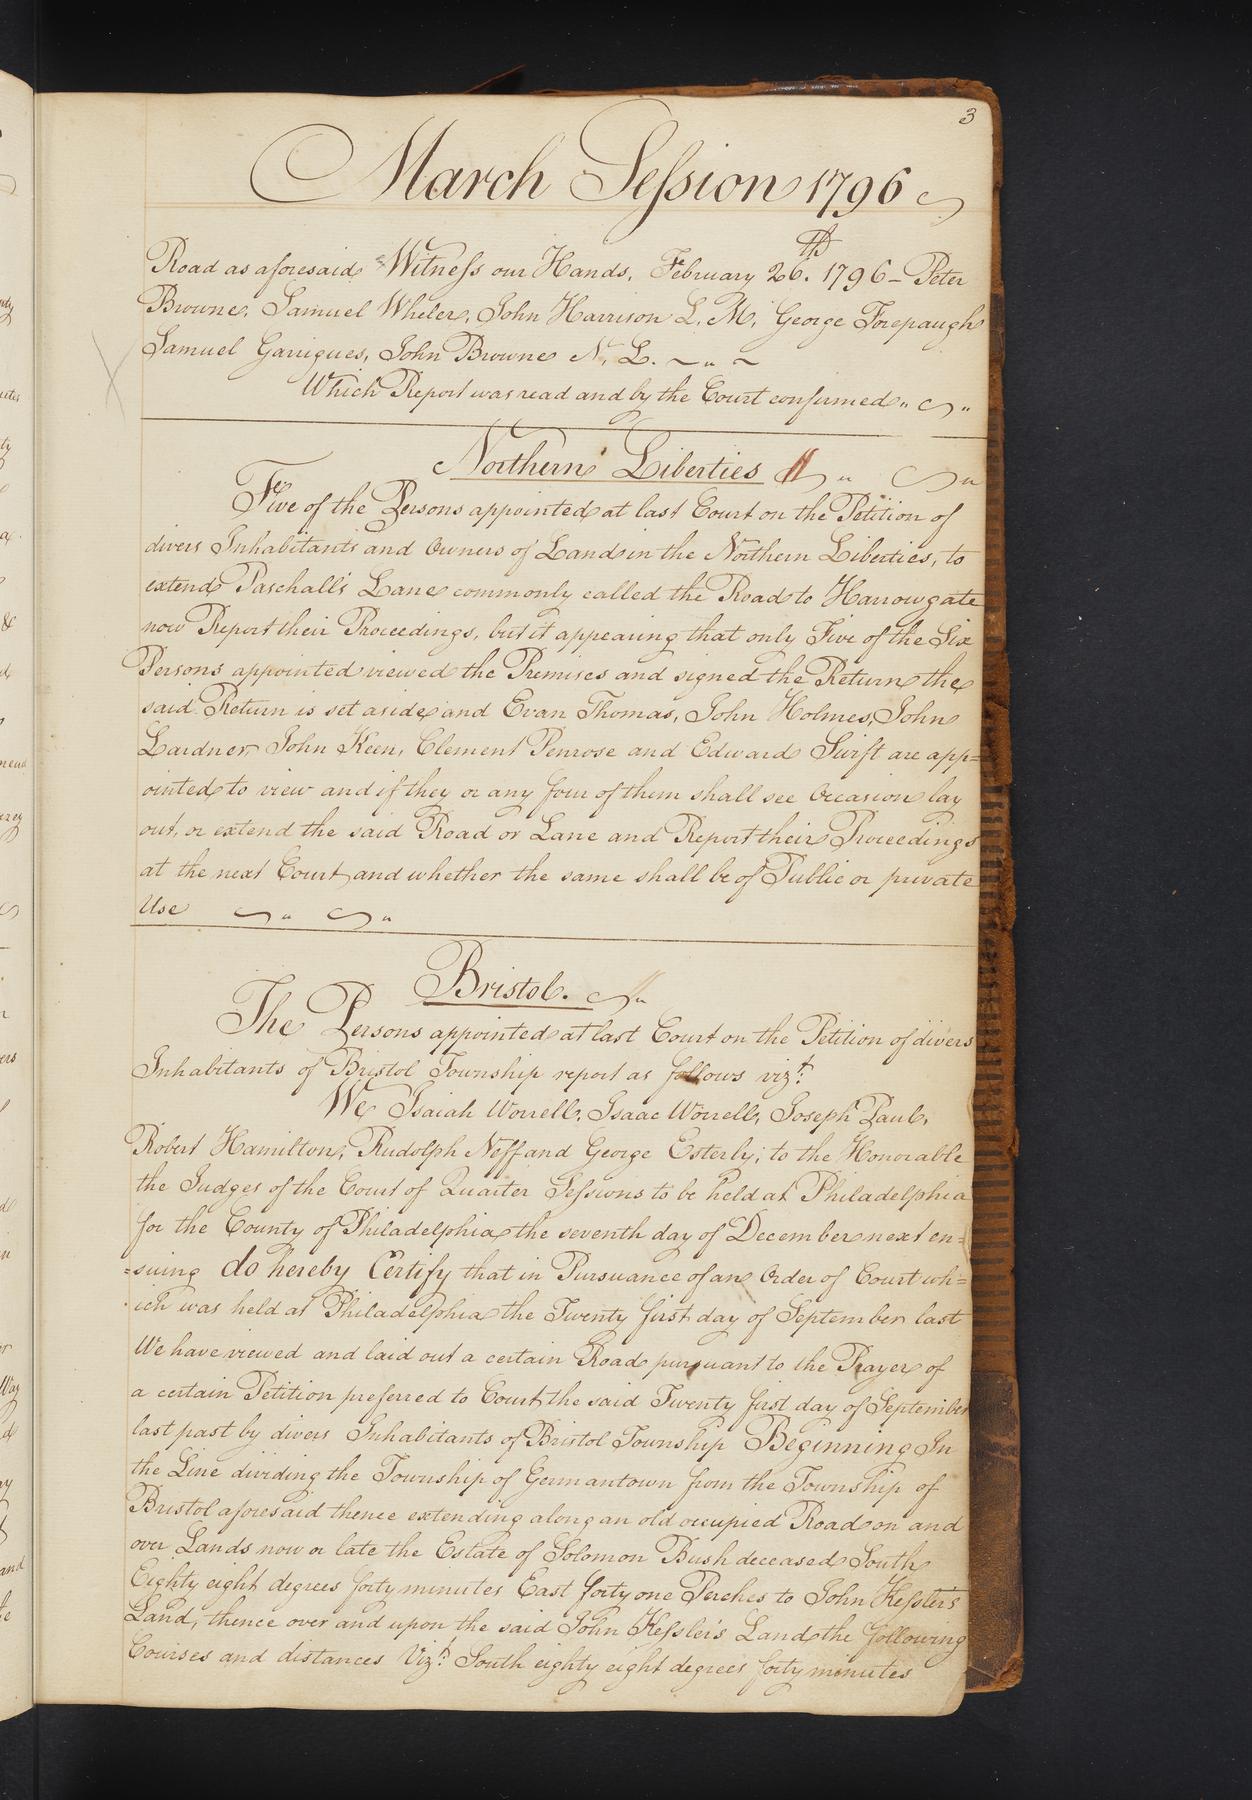 3
March Session 1796
Road as aforesaid Witness our Hands, February 26th. 1796 - Peter
Browne, Samuel Wheler, John Harrison L. M, George Forepaugh
Samuel Garrigues, John Browne N. L. ~ " ~
Which Report was read and by the Court confirmed " ~ "
Northern Liberties
Five of the Persons appointed at last Court on the Petition of
divers Inhabitants and Owners of Land in the Northern Liberties, to
extend Paschall's Lane commonly called the Road to Harrowgate
now Report their Proceedings, but it appearing that only Five of the Six
Persons appointed viewed the Premises and signed the Return the
said Return is set aside and Evan Thomas, John Holmes, John
Lardner John Keen, Clement Penrose and Edward Swift are app=
ointed to view and if they or any four of them shall see Occasion lay
out, or extend the said Road or Lane and Report their Proceedings
at the next Court and whether the same shall be of Public or private
Use
Bristol.
The Persons appointed at last Court on the Petition of divers
Inhabitants of Bristol Township report as follows vizt:
We Isaiah Worrell, Isaac Worrell, Joseph Paul,
Robert Hamilton, Rudolph Neff and George Esterly; to the Honorable
the Judges of the Court of Quarter Sessions to be held at Philadelphia
for the County of Philadelphia the seventh day of December next en=
=suing do hereby Certify that in Pursuance of an Order of Court wh=
ich was held at Philadelphia the Twenty first day of September last
We have viewed and laid out a certain Road pursuant to the Prayer of
a certain Petition preferred to Court the said Twenty first day of September
last past by divers Inhabitants of Bristol Township Beginning In
the Line dividing the Township of Germantown from the Township of
Bristol aforesaid thence extending along an old occupied Road on and
over Lands now or late the Estate of Solomon Bush deceased South
Eighty eight degrees forty minutes East forty one Perches to John Kessler's
Land, thence over and upon the said John Kessler's Land the following
Courses and distances Vizt: South eighty eight degrees forty minutes